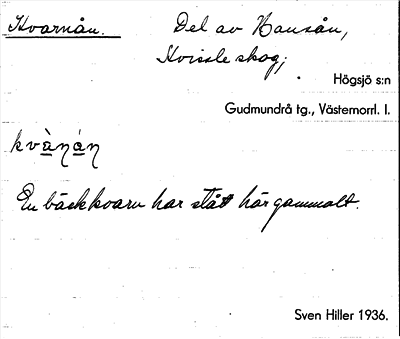 Kvarnån. Del av Hansån,
Kvissle skog;
Högsjö s:n
Gudmundrå tg., Västernorrl. l.
kvà̱ŋá̱ŋ
En bäckkvarn har stått här gammalt.
Sven Hiller 1936.